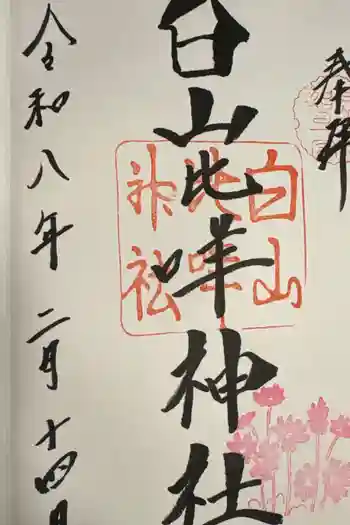 奉拝
白山比咩神社
令和八年二月十四日
白山
比咩
神社